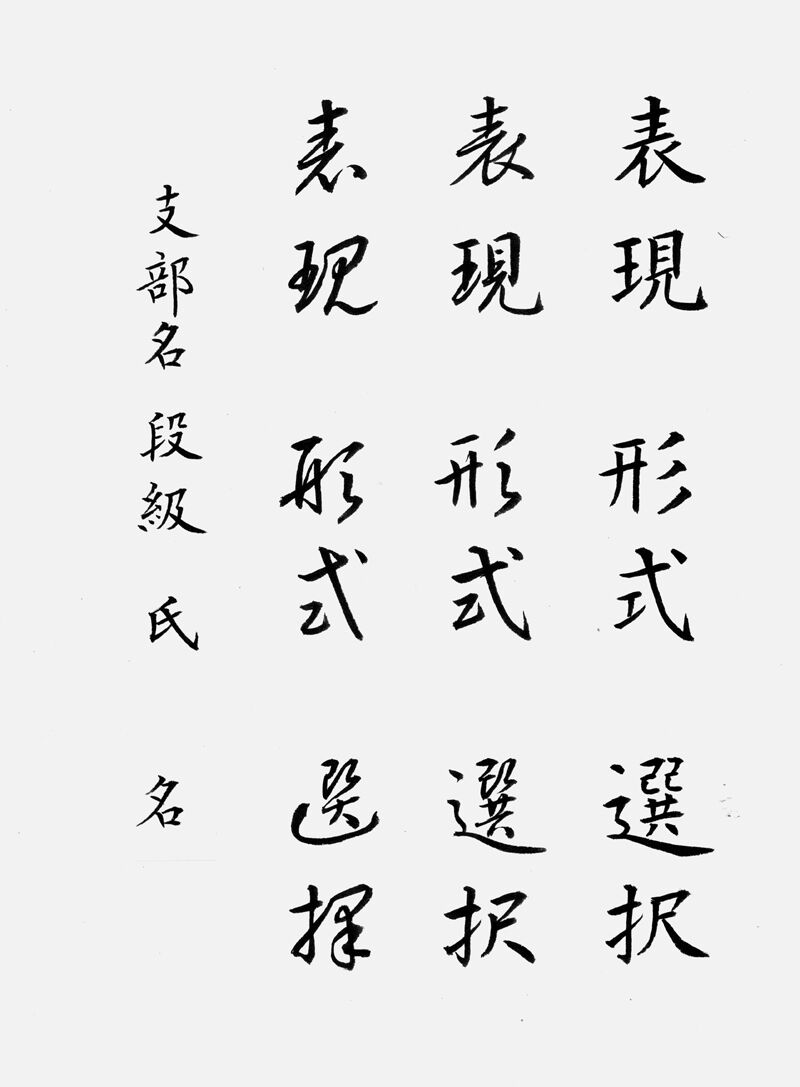 表現 形式 選択
表現 形式 選択
表現 形式 選擇
支部名 段級 氏 名